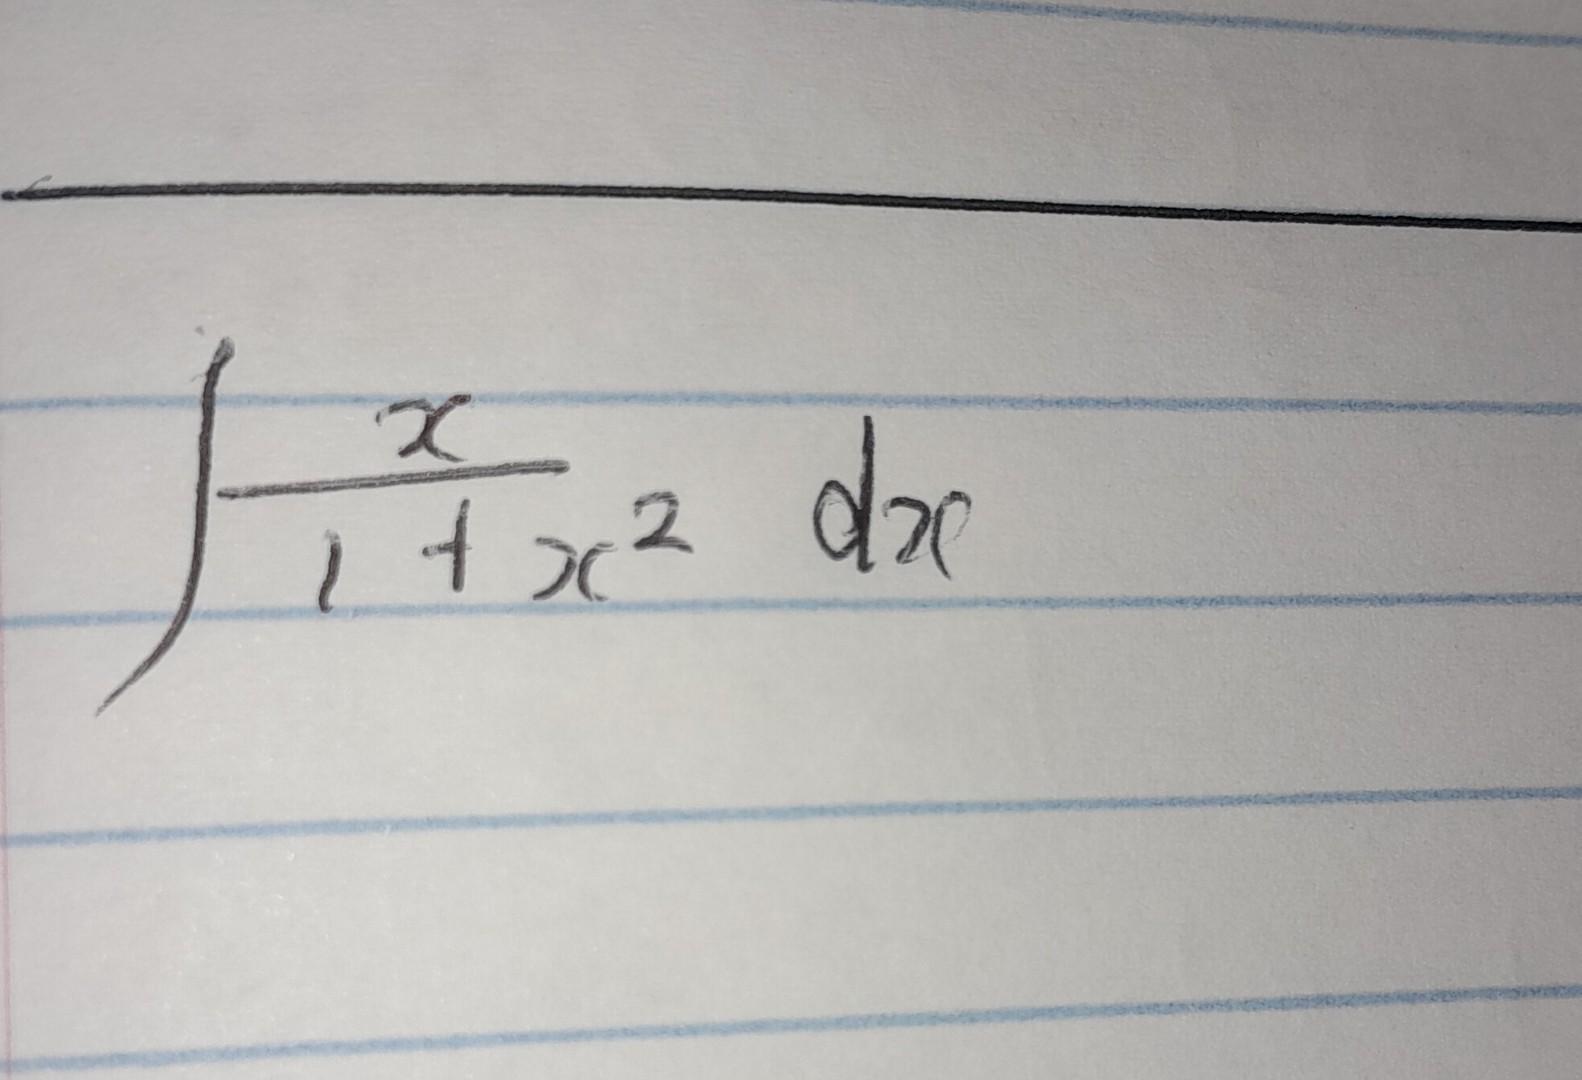 ∫ x/(1 + x²) dx